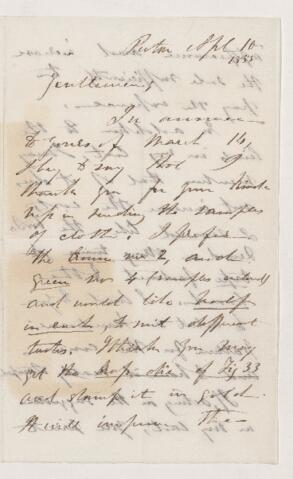 Apl. 10
1855
Gentlemen,
In answer
to yours of March 16,
I beg to say that I
thank you for your kind-
ness in sending the samples
of cloth. I prefer
the brown no 2, and
green no 4 (samples enclosed)
and would like half
in each to suit different
tastes. Which you may
get the dies of Fig 33
and stamp it in gold.
It will improve the